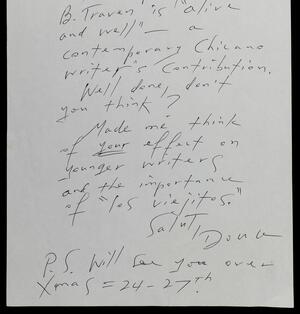 B. Traven is "alive
and well" — a
contemporary Chicano
writer's contribution.
Well done, don't
you think?
Made me think
of your effect on
younger writers
and the importance
of "los viejitos."
Salut,
P.S. Will see you over
Xmas = 24-27th.